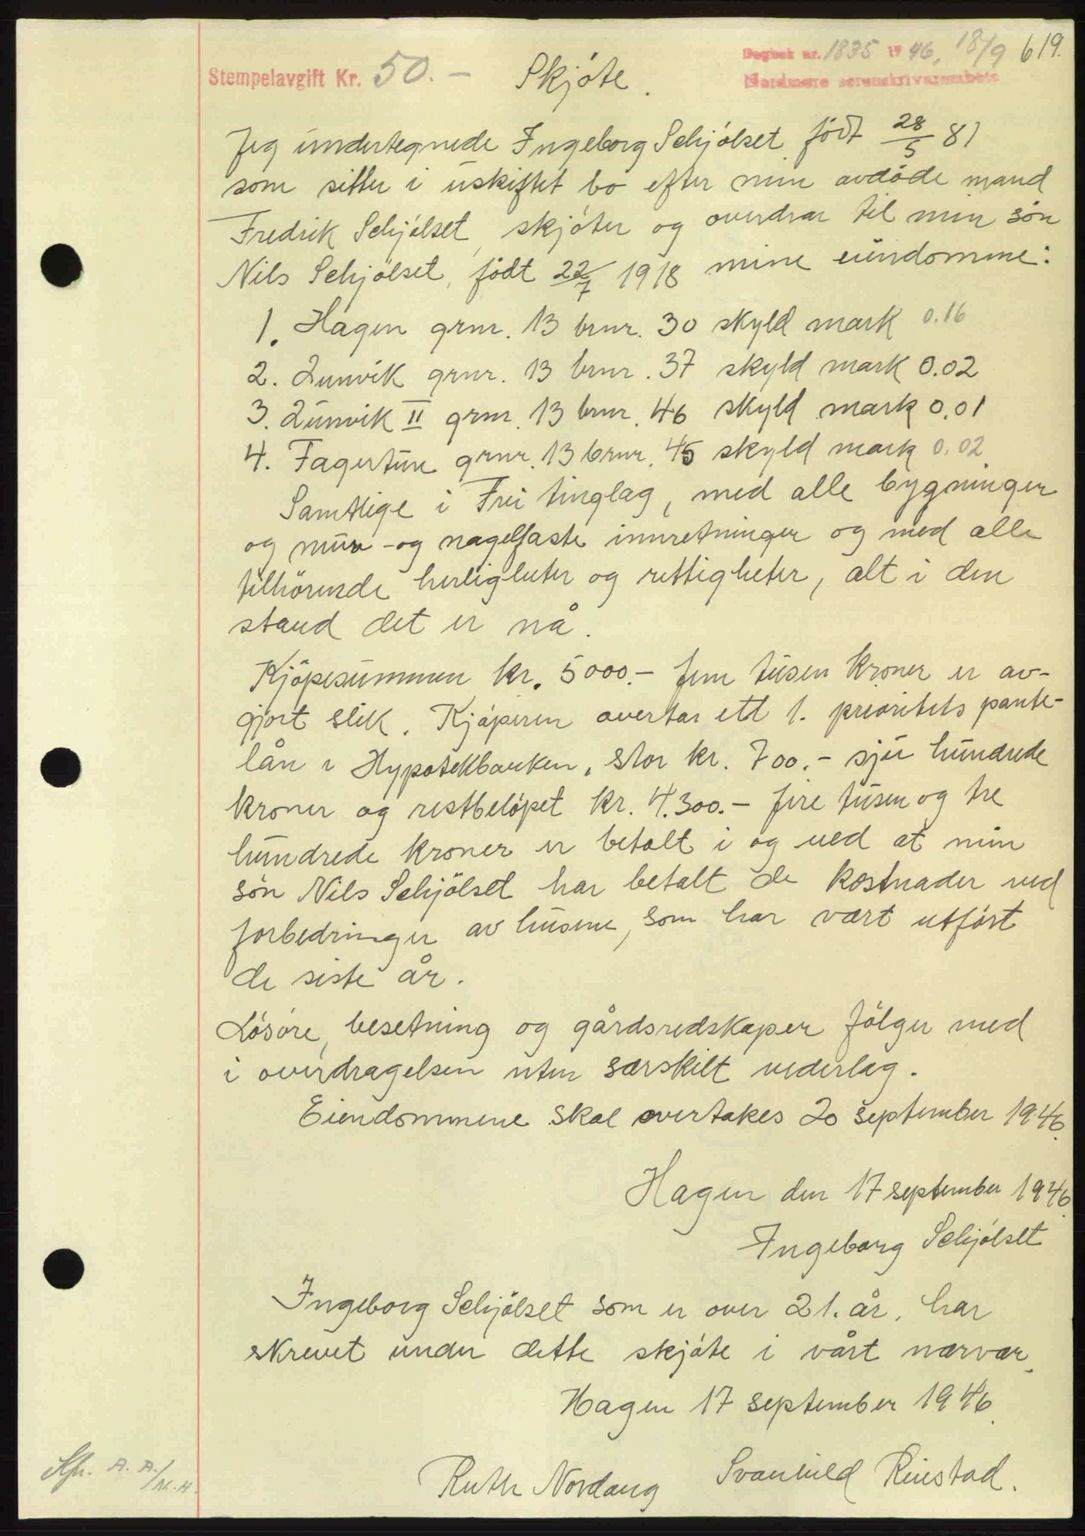 Dagbok nr. 1835 1946, 18/9 619.
Nordmøre sorenskriverembete
Stempelavgift Kr. 50.-
Skjöte.
Jeg undertegnede Ingeborg Schjölset, födt 28/5 81
som sitter i uskiftet bo efter min avdöde mand
Fredrik Schjölset, skjöter og overdrar til min sön
Nils Schjölset, födt 22/7 1918 mine eiendomme:
1. Hagen grnr. 13 brnr. 30 skyld mark 0.16
2. Lunvik grnr. 13 brnr. 37 skyld mark 0.02
3. Lunvik II grnr. 13 brnr. 46 skyld mark 0.01
4. Fagertun grnr. 13 brnr. 45 skyld mark 0.02
Samtlige i Frei tinglag, med alle bygninger
og mur- og nagelfaste innretninger og med alle
tilhörende herligheter og rettigheter, alt i den
stand det er nå.
Kjöpesummen kr. 5000.- fem tusen kroner er av-
gjort slik. Kjöperen overtar ett 1. prioritets pante-
lån i Hypotekbanken, stor kr. 700.- sju hundrede
kroner og restbelöpet kr. 4.300.- fire tusen og tre
hundrede kroner er betalt i og ved at min
sön Nils Schjölset har betalt de kostnader ved
forbedringer av husene, som har vært utfört
de siste år.
Lösöre, besetning og gårdsredskaper fölger med
i overdragelsen uten særskilt vederlag.
Eiendommene skal overtakes 20 september 1946.
Hagen den 17 september 1946.
Ingeborg Schjölset
Ingeborg Schjölset som er over 21. år, har
skrevet under dette skjöte i vårt nærvær.
Hagen 17 september 1946.
Ruth Nordang Svanhild Reistad.
A. A./M.H.